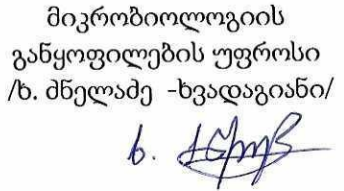 მიკრობიოლოგიის
განყოფილების უფროსი
/ხ. ძნელაძე -ხვადაგიანი/
ხ.